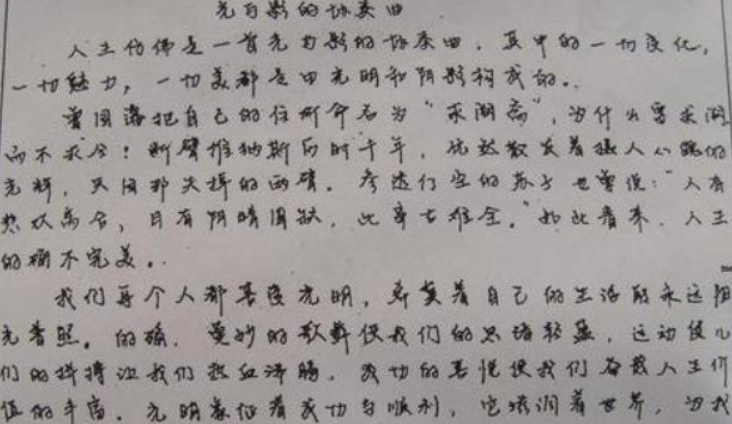 光与影的协奏曲
人生仿佛是一首光与影的协奏曲，其中的一切变化，
一切魅力，一切美都是由光明和阴影构成的。
曾国藩把自己的住所命名为“求阙斋”，为什么要求阙
而不求全！断臂维纳斯历时千年，依然散发着摄人心魄的
光辉，只因那失掉的两臂。豪迈行空的苏子也曾说：“人有
悲欢离合，月有阴晴圆缺，此事古难全。”如此看来，人生
的确不完美。
我们每个人都喜爱光明，希冀着自己的生活能永远阳
光普照。的确，曼妙的歌舞使我们的思绪轻盈，运动健儿
们的拼搏让我们热血沸腾，成功的喜悦使我们满载人生价
值的丰富。光明象征着成功与顺利，它滋润着世界，为我